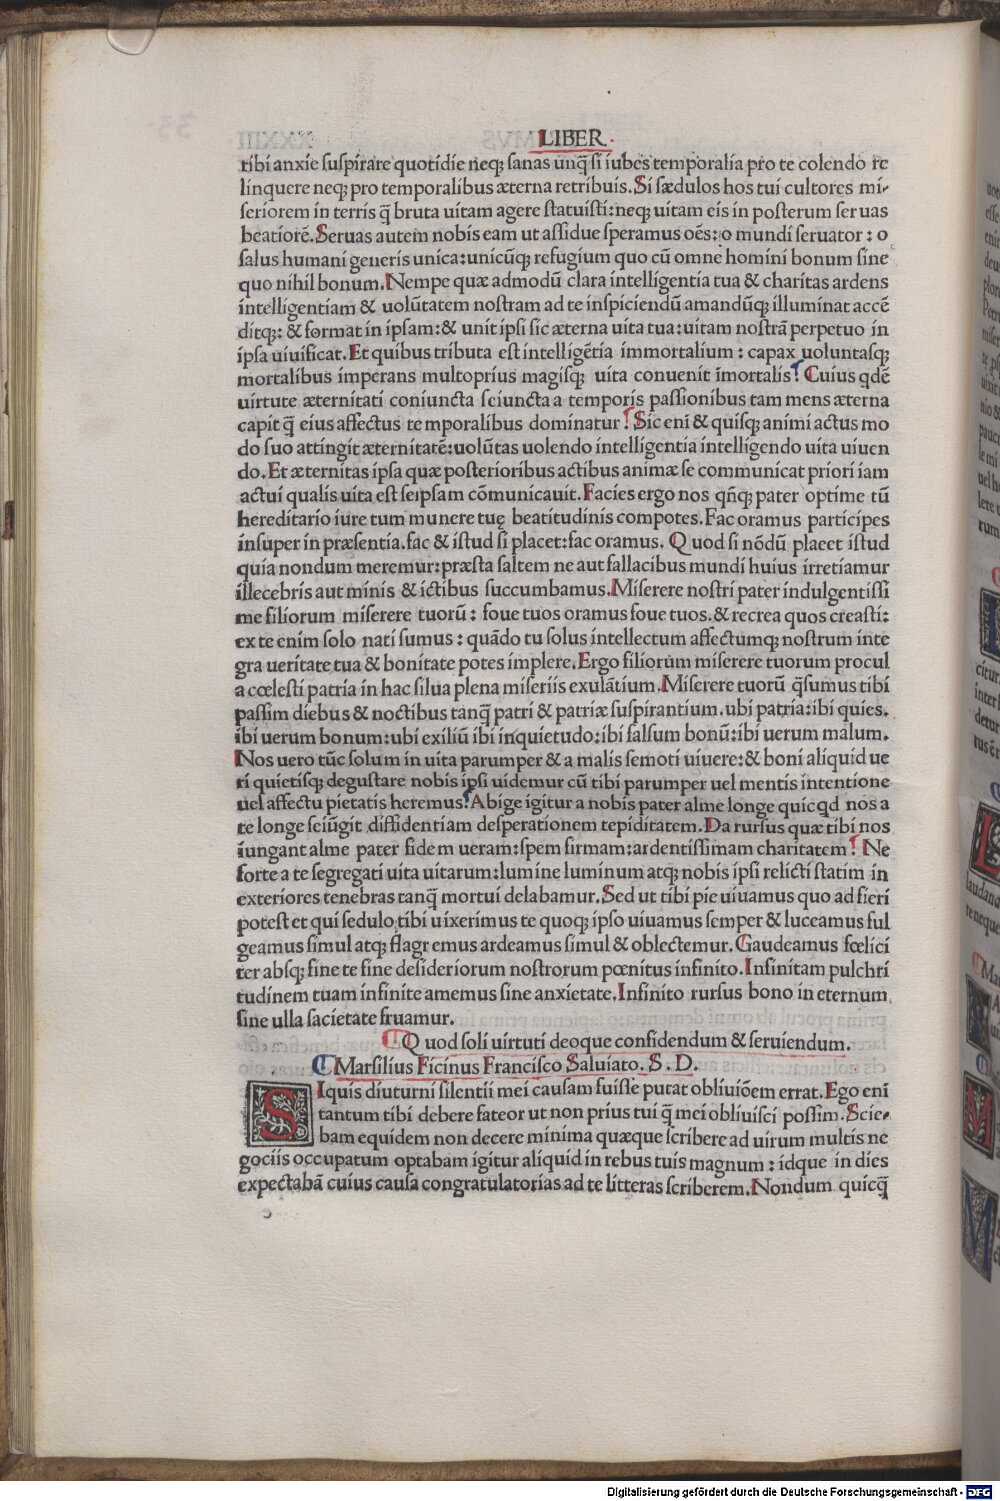 LIBER.
tibi anxie suspirare quotidie neqꝫ sanas unq̃ si iubes temporalia pro te colendo re
linquere neqꝫ pro temporalibus æterna retribuis. Si sædulos hos tui cultores mi-
seriorem in terris q̃ bruta uitam agere statuisti: neqꝫ uitam eis in posterum seruas
beatiorẽ. Seruas autem nobis eam ut assidue speramus oẽs: o mundi seruator: o
salus humani generis unica: unicũqꝫ refugium quo cũ omne homini bonum sine
quo nihil bonum. Nempe quæ admodũ clara intelligentia tua & charitas ardens
intelligentiam & uolũtatem nostram ad te inspiciendũ amandũqꝫ illuminat accẽ
ditqꝫ: & format in ipsam: & unit ipsi sic æterna uita tua: uitam nostrã perpetuo in
ipsa uiuificat. Et quibus tributa est intelligẽtia immortalium: capax uoluntasqꝫ
mortalibus imperans multoprius magisqꝫ uita conuenit ĩmortalis? Cuius qdẽ
uirtute æternitati coniuncta seiuncta a temporis passionibus tam mens æterna
capit q̃ eius affectus temporalibus dominatur? Sic enĩ & quisqꝫ animi actus mo
do suo attingit æternitatẽ: uolũtas uolendo intelligentia intelligendo uita uiuen
do. Et æternitas ipsa quæ posterioribus actibus animæ se communicat priori iam
actui qualis uita est seipsam cõmunicauit. Facies ergo nos qñqꝫ pater optime tũ
hereditario iure tum munere tuę beatitudinis compotes. Fac oramus participes
insuper in præsentia. fac & istud si placet: fac oramus. Quod si nõdũ placet istud
quia nondum meremur: præsta saltem ne aut fallacibus mundi huius irretiamur
illecebris aut minis & ictibus succumbamus. Miserere nostri pater indulgentissi
me filiorum miserere tuorũ: foue tuos oramus foue tuos. & recrea quos creasti:
ex te enim solo nati sumus: quãdo tu solus intellectum affectumqꝫ nostrum inte
gra ueritate tua & bonitate potes implere. Ergo filiorum miserere tuorum procul
a cœlesti patria in hac silua plena miseriis exulãtium. Miserere tuorũ q̃sumus tibi
passim diebus & noctibus tanq̃ patri & patriæ suspirantium. ubi patria: ibi quies.
ibi uerum bonum: ubi exiliũ ibi inquietudo: ibi falsum bonũ: ibi uerum malum.
Nos uero tũc solum in uita parumper & a malis semoti uiuere: & boni aliquid ue
ri quietisqꝫ degustare nobis ipsi uidemur cũ tibi parumper uel mentis intentione
uel affectu pietatis heremus? Abige igitur a nobis pater alme longe quicqd nos a
te longe seiũgit diffidentiam desperationem tepiditatem. Da rursus quæ tibi nos
iungant alme pater fidem ueram: spem firmam: ardentissimam charitatem? Ne
forte a te segregati uita uitarum: lumine luminum atqꝫ nobis ipsi relicti statim in
exteriores tenebras tanq̃ mortui delabamur. Sed ut tibi pie uiuamus quo ad fieri
potest et qui sedulo tibi uixerimus te quoqꝫ ipso uiuamus semper & luceamus ful
geamus simul atqꝫ flagremus ardeamus simul & oblectemur. Gaudeamus fœlici
ter absqꝫ fine te fine desideriorum nostrorum pœnitus infinito. Infinitam pulchri
tudinem tuam infinite amemus sine anxietate. Infinito rursus bono in eternum
sine ulla sacietate fruamur.
Quod soli uirtuti deoque confidendum & seruiendum.
Marsilius Ficinus Francisco Saluiato. S. D.
SIquis diuturni silentii mei causam fuisse putat obliuiõem errat. Ego enĩ
tantum tibi debere fateor ut non prius tui q̃ mei obliuisci possim. Scie-
bam equidem non decere minima quæque scribere ad uirum multis ne
gociis occupatum optabam igitur aliquid in rebus tuis magnum: idque in dies
expectabã cuius causa congratulatorias ad te litteras scriberem. Nondum quicq̃
Digitalisierung gefördert durch die Deutsche Forschungsgemeinschaft - DFG